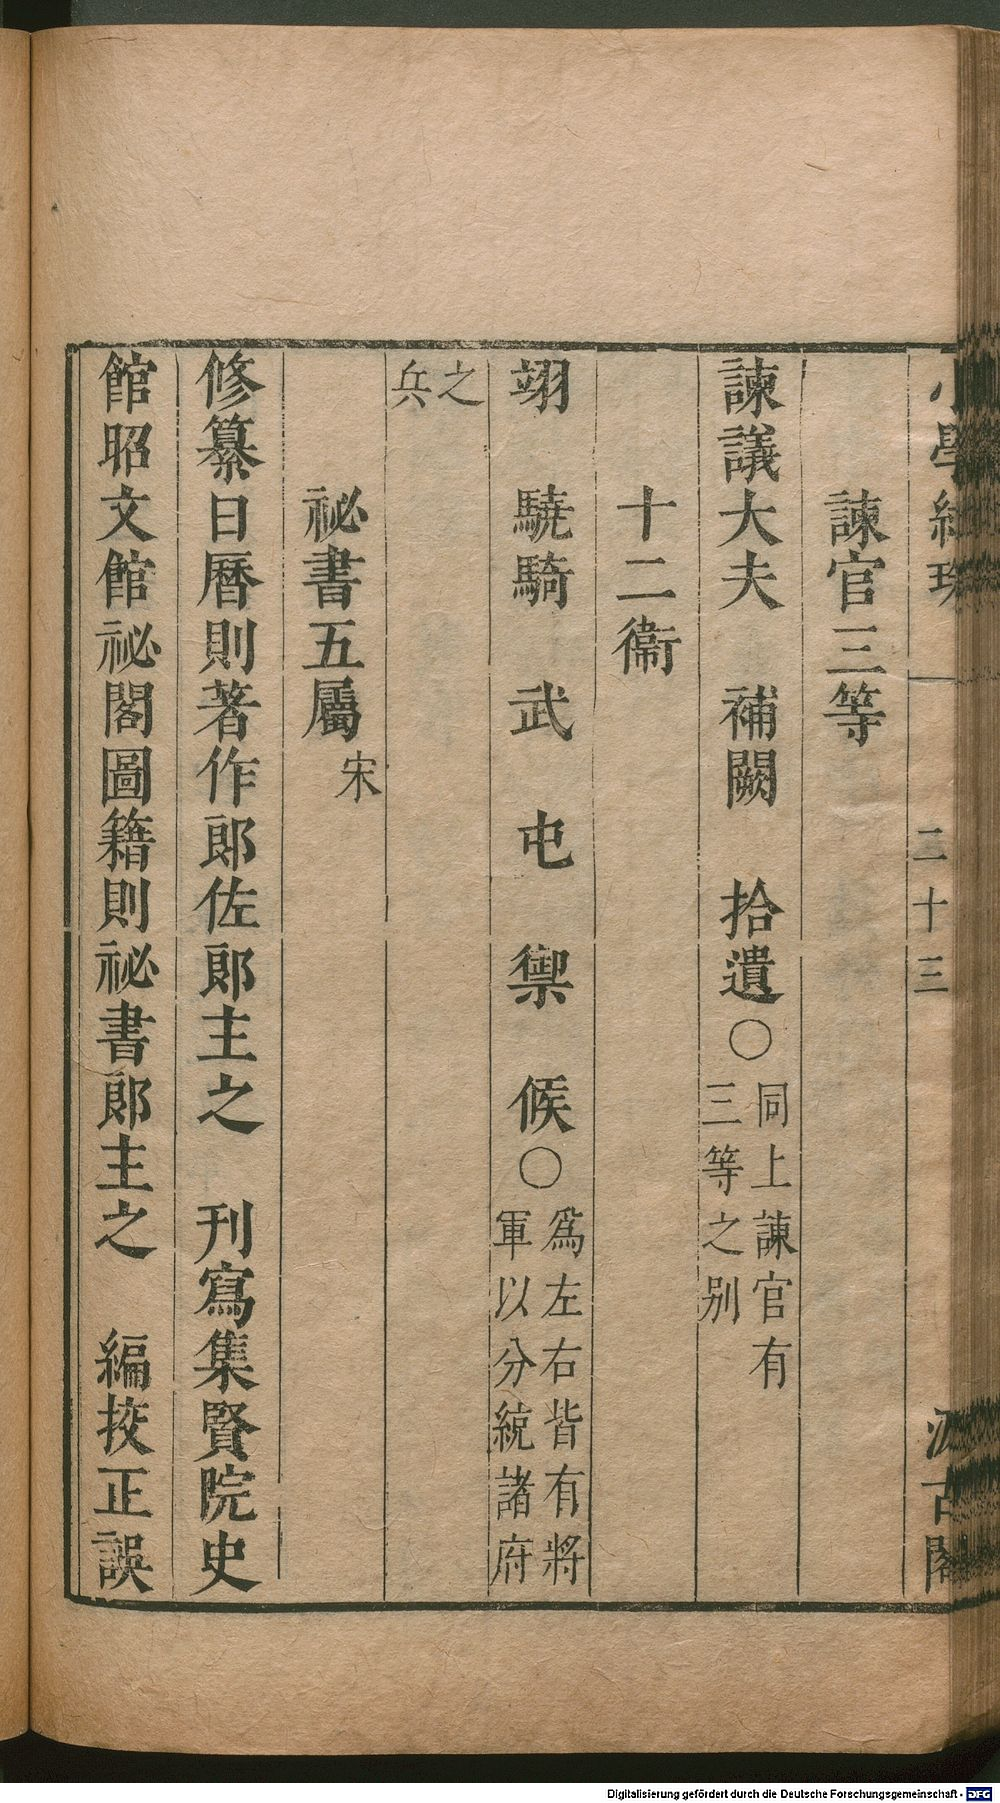 小學紺珠 二十三 汲古閣
諫官三等
諫議大夫 補闕 拾遺○同上諫官有三等之別
十二衞
翊 驍騎 武 屯 禦 候○爲左右皆有將軍以分統諸府
之兵
祕書五屬宋
修纂日曆則著作郎佐郎主之 刊寫集賢院史
館昭文館祕閣圖籍則祕書郎主之 編挍正誤
Digitalisierung gefördert durch die Deutsche Forschungsgemeinschaft - DFG